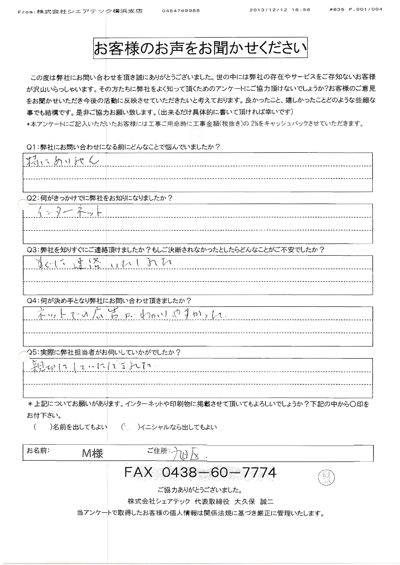 From:株式会社シェアテック横浜本店 0454799989 2013/12/12 16:58 #035 P.001/004
お客様のお声をお聞かせください
この度は弊社にお問い合わせを頂き誠にありがとうございました。世の中には弊社の存在やサービスをご存知ないお客様
が沢山いらっしゃいます。その方たちに弊社をよく知って頂くためのアンケートにご協力頂けないでしょうか?お客様のご意見
をお聞かせいただき今後の活動に反映させていただきたいと考えております。良かったこと、嬉しかったことどのような些細な
事でも結構です。是非ご協力お願い致します。(出来るだけ具体的に書いて頂ければ幸いです)
*本アンケートにご記入いただいたお客様には工事ご用命時に工事金額(税抜き)の2%をキャッシュバックさせていただきます。
Q1:弊社にお問い合わせになる前にどんなことで悩んでいましたか?
特にありません
Q2:何がきっかけでに弊社をお知りになりましたか?
インターネット
Q3:弊社を知りすぐにご連絡頂けましたか?もしご決断されなかったとしたらどんなことがご不安でしたか?
すぐに連絡いたしました
Q4:何が決め手となり弊社にお問い合わせ頂きましたか?
ネットでの広告がわかりやすかった
Q5:実際に弊社担当者がお伺いしていかがでしたか?
親切にしていただきました
*上記についてお願いがあります。インターネットや印刷物に掲載させて頂いてもよろしいでしょうか?下記の中から○印を
お付下さい。
( )名前を出してもよい ( )イニシャルなら出してもよい
お名前: M様 ご住所: 旭区
FAX 0438-60-7774
ご協力ありがとうございました。
株式会社シェアテック 代表取締役 大久保 誠二
当アンケートで取得したお客様の個人情報は関係法規に基づき厳正に管理いたします。